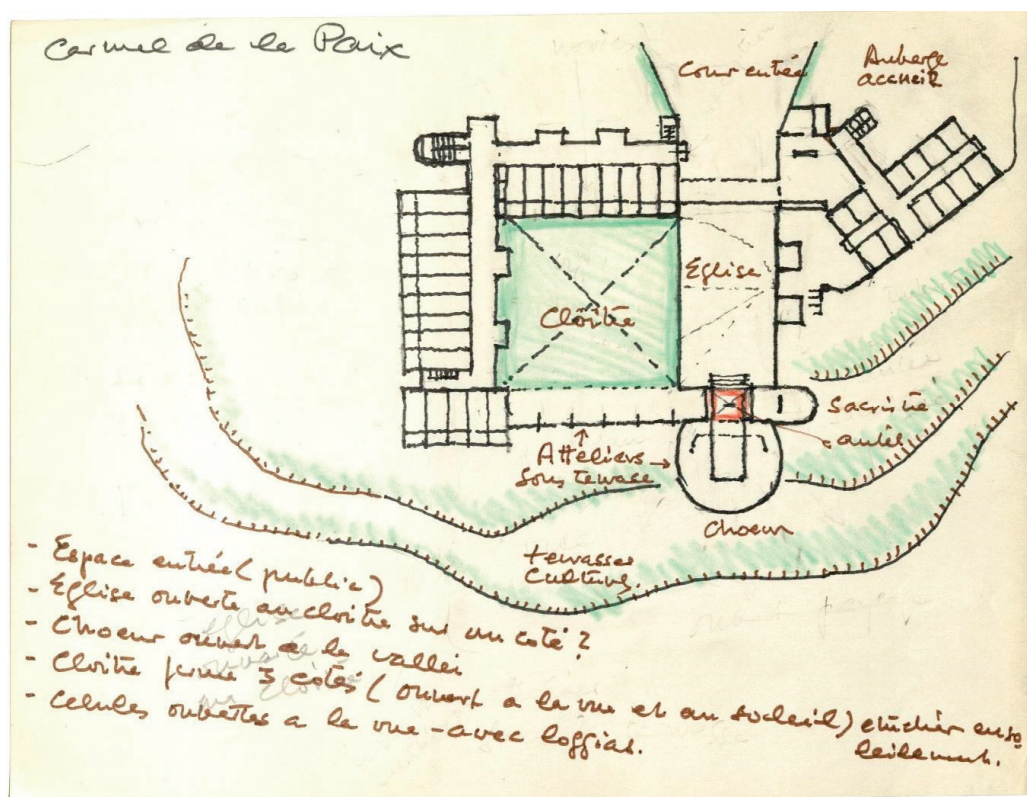 Carmel de la Paix
Cour entrée
Auberge
accueil
Eglise
Cloitre
Sacristie
autel
Atteliers
sous terrasse
Choeur
terrasses
culture
- Espace entrée (public)
- Eglise ouverte au cloitre sur un coté?
- Choeur ouvert a la vallei
- Cloitre ferme 3 cotés (ouvert a la vue et au socleil) etudier enso
leilement.
- Celules ouvertes a la vue - avec loggias.
eglise
ouverte
au cloitre